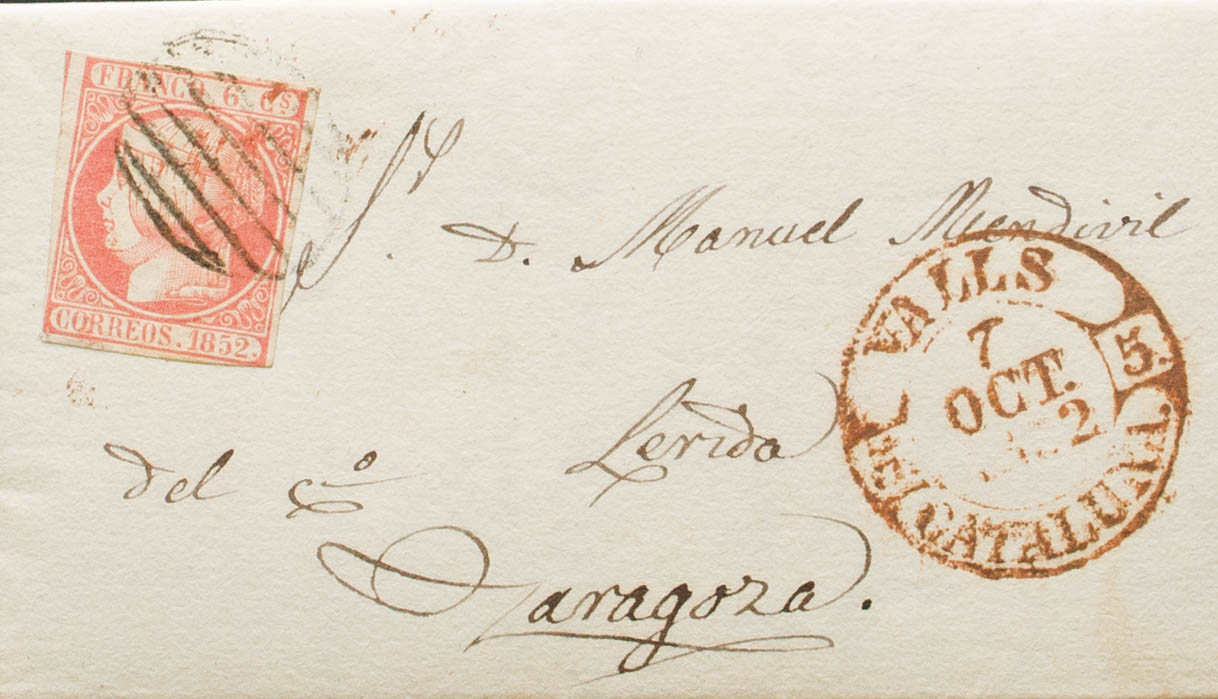 FRANCO. 6 Cs
CORREOS. 1852.
Sr. D. Manuel Mendivil
Lerida
del co
Zaragoza.
VALLS
7
OCT.
2
5.
CATALUÑA.